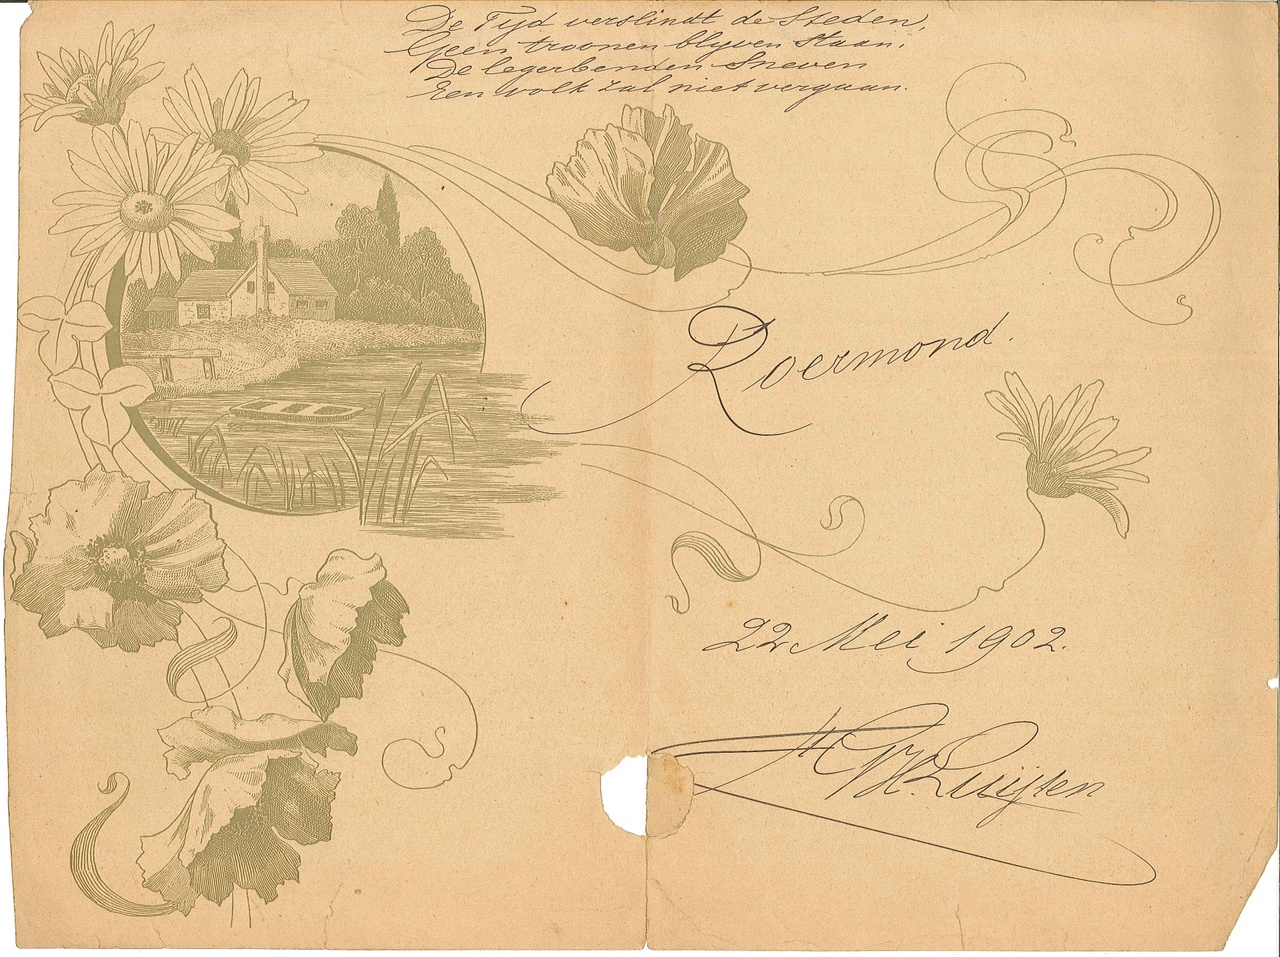 De Tijd verslindt de Steden,
Geen troonen blijven staan.
De legerbenden Sneven
Een volk zal niet vergaan.
Roermond.
22 Mei 1902.
H. Luijten